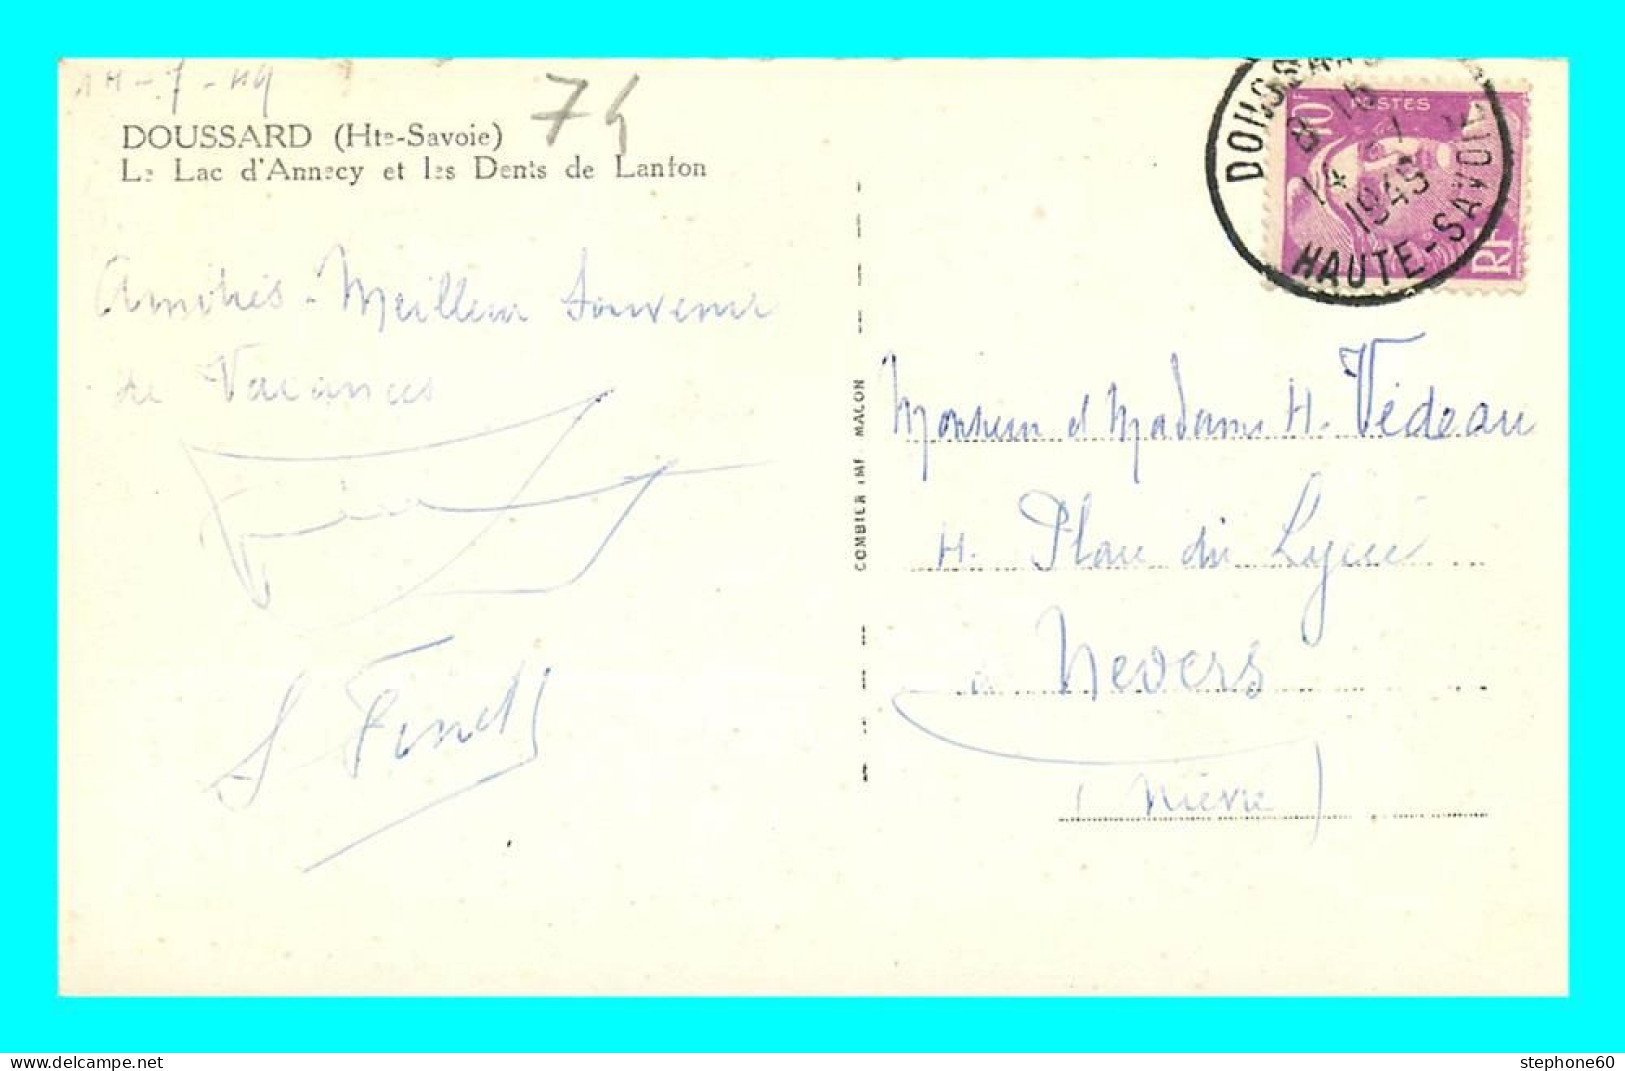 14-7-49
74
DOUSSARD (Hte-Savoie)
Le Lac d'Annecy et les Dents de Lanfon
Amitiés - Meilleur Souvenir
de Vacances
COMBIER IMP. MACON
DOUSSARD
8 H 15
14
1945
HAUTE-SAVOIE
10F
POSTES
RF
Monsieur et Madame H. Védeau
4. Place du Lycée
à Nevers
(Nièvre)
stephone60